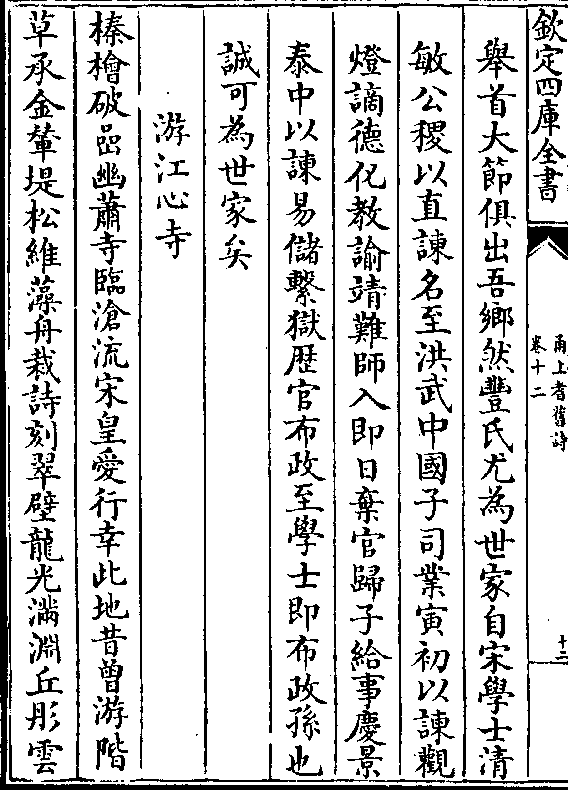 欽定四庫全書
甬上耆舊詩
卷十二
十三
舉首大節俱出吾鄉然豐氏尤為世家自宋學士清
敏公稷以直諫名至洪武中國子司業寅初以諫觀
燈謫德化教諭靖難師入即日棄官歸子給事慶景
泰中以諫易儲繫獄歷官布政至學士即布政孫也
誠可為世家矣
游江心寺
榛檜破嵒幽蕭寺臨滄流宋皇愛行幸此地昔曽游階
草承金輦堤松維藻舟栽詩刻翠壁龍光滿淵丘彤雲